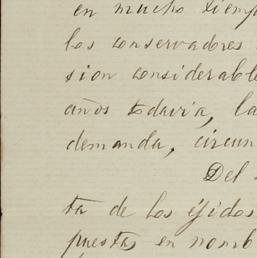 en mucho tiemp
los conservadores
sion considerabl
años todavia, la
demanda, circun
Del
ta de los éjidos
puestas en nomb